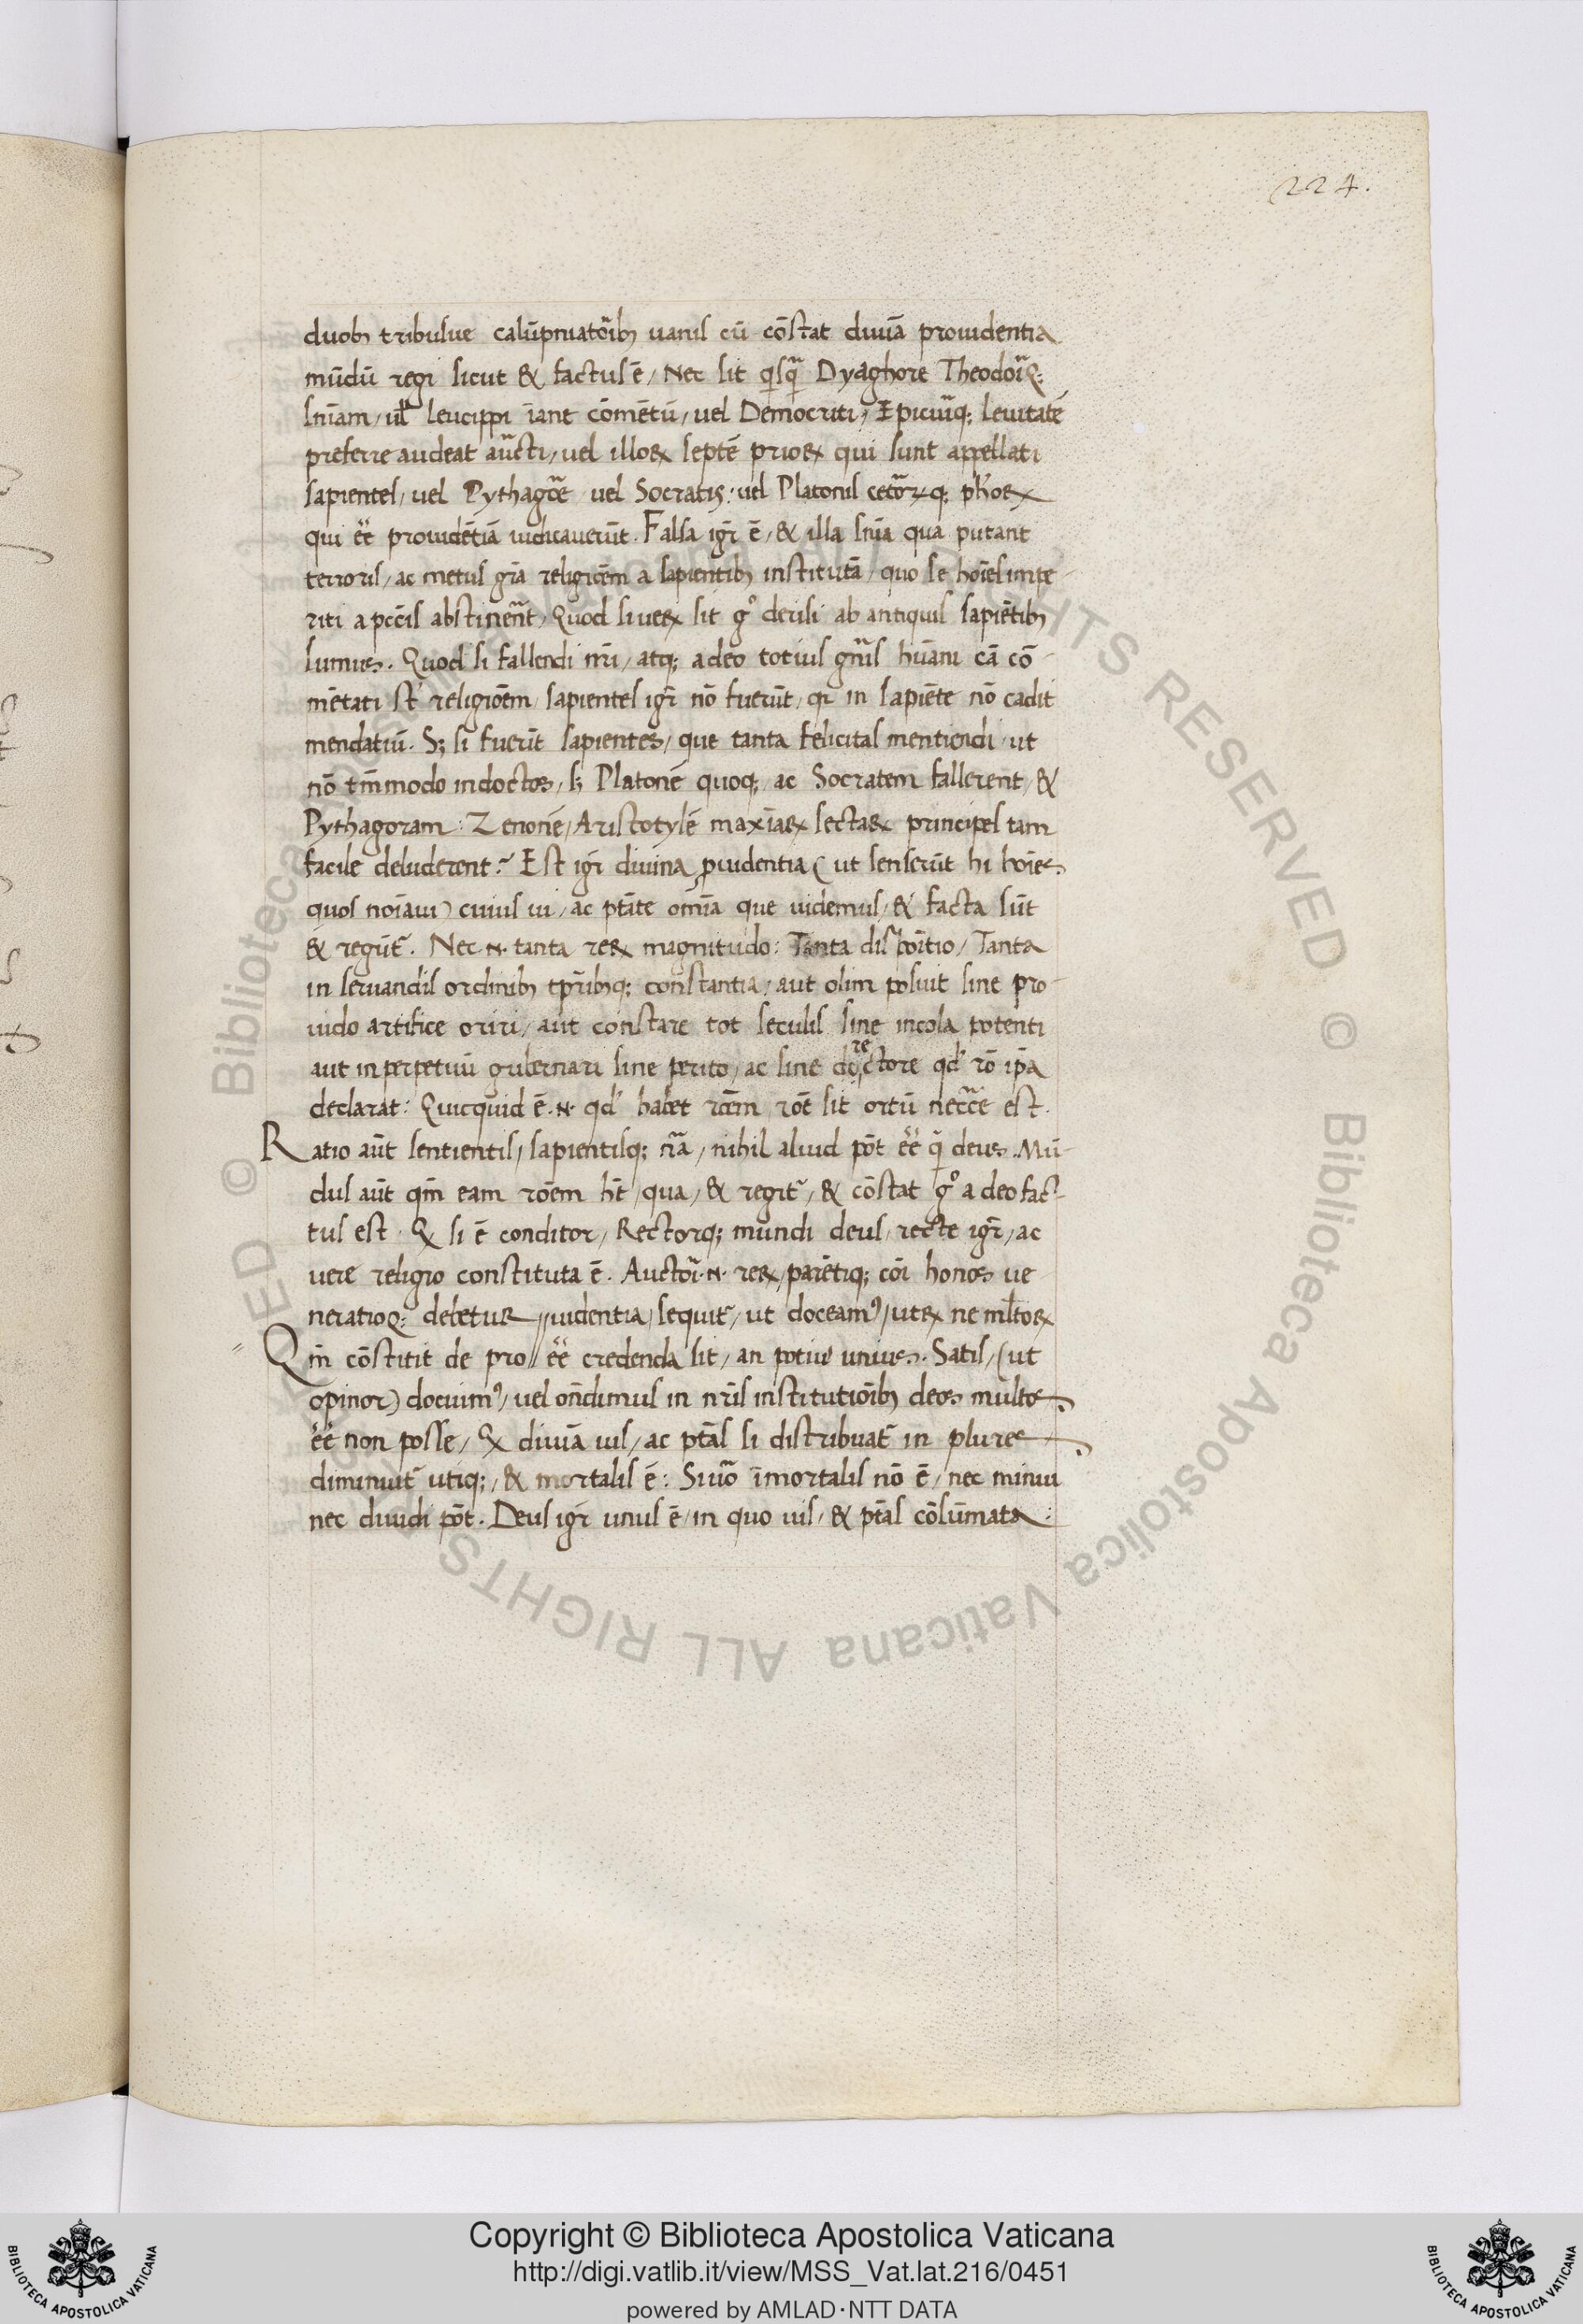 224.
duob; tribusue calūpniatorib; uanis cū cōstat diuīa prouidentia
mūdū regi sicut & factus ē / Nec sit qͥsqᷓ Dyaghore Theodoriq;
sniam / ul̄ leucippi īant cōmētū / uel Democriti / Epicuriq; leuitatē
preferre audeat aucti / uel illoꝝ septē prioꝝ qui sunt appellati
sapientes / uel Pythagore uel Socratis : uel Platonis cetorꝝq; ph̄oꝝ
qui ēē prouidētiā iudicauerūt . Falsa igr̄ ē / & illa snīa qua putant
terroris / ac metus grā religiōem a sapientib; institutā / quo se hoīes impe-
riti a pccīs abstinerent / Quod si ueꝝ sit gͦ derisi ab antiquis sapiētib;
sumus . Quod si fallendi nr̄i / atq; adeo totius gnīs hūani cā cō-
mētati st̄ religiōem / sapientes igr̄ nō fuerūt / qr in sapiēte nō cadit
mendatiū . S; si fuerūt sapientes / que tanta felicitas mentiendi / ut
nō tm̄modo indoctos / s; Platonē quoq; ac Socratem fallerent / &
Pythagoram : Zenonē / Aristotylē maxīaꝝ sectaꝝ principes tam
facile deluderent ? Est igr̄ diuina ꝓuidentia ( ut senserūt hi hoīes
quos noīaui ) cuius ui / ac ptāte omīa que uidemus / & facta sūt
& regūt̄ . Nec .N. tanta reꝝ magnitudo : Tanta dispoītio / Tanta
in seruandis ordinib; tpr̄ibq; constantia / aut olim posuit sine pro-
uido artifice oriri / aut constare tot seculis sine incola potenti
aut in perpetuū gubernari sine perito / ac sine do rectore qd̄ rō ip̄a
declarat : Quicquid ē .N. qd̄ habet rōem rōe sit ortū neccē est .
Ratio aūt sentientis / sapientisq; nā / nihil aliud pōt ēē qͣ deus . Mū-
dus aūt qm̄ eam rōem h̄t / qua / & regit̄ / & cōstat gͦ a deo fac-
tus est . Q si ē conditor / Rectorq; mundi deus / recte igr̄ / ac
uere religio constituta ē . Auctori .N. reꝝ / parētiq; cōi honos ue
neratioq; debetur // uidentia / sequit̄ / ut doceamꝰ / utꝝ ne ml̄toꝝ
Qm̄ cōstitit de pro // ēē credenda sit / an potius unius . Satis / ( ut
opinor ) docuimꝰ / uel on̄dimus in nr̄is institutiōib; deos multos
ēē non posse / Q diuīa uis / ac ptās si distribuat̄ in plures
diminuit̄ utiq; / & mortalis ē : Si uͦ īmortalis nō ē / nec minui
nec diuidi pōt . Deus igr̄ unus ē / in quo uis / & ptās cōsūmata :
© Biblioteca Apostolica Vaticana ALL RIGHTS RESERVED © Biblioteca Apostolica Vaticana ALL RIGHTS RESERVED
Copyright © Biblioteca Apostolica Vaticana
http://digi.vatlib.it/view/MSS_Vat.lat.216/0451
powered by AMLAD·NTT DATA
BIBLIOTECA APOSTOLICA VATICANA
BIBLIOTECA APOSTOLICA VATICANA